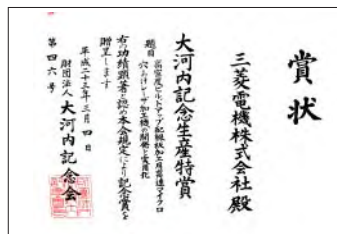 賞状
三菱電機株式会社殿
大河内記念生産特賞
題目 高密度ビルドアップ配線板加工用高速マイクロ
穴あけレーザ加工機の開発と実用化
右の功績顕著と認め本会規定により記念賞を
贈呈します
平成二十三年三月四日
財団法人大河内記念会
第四六号